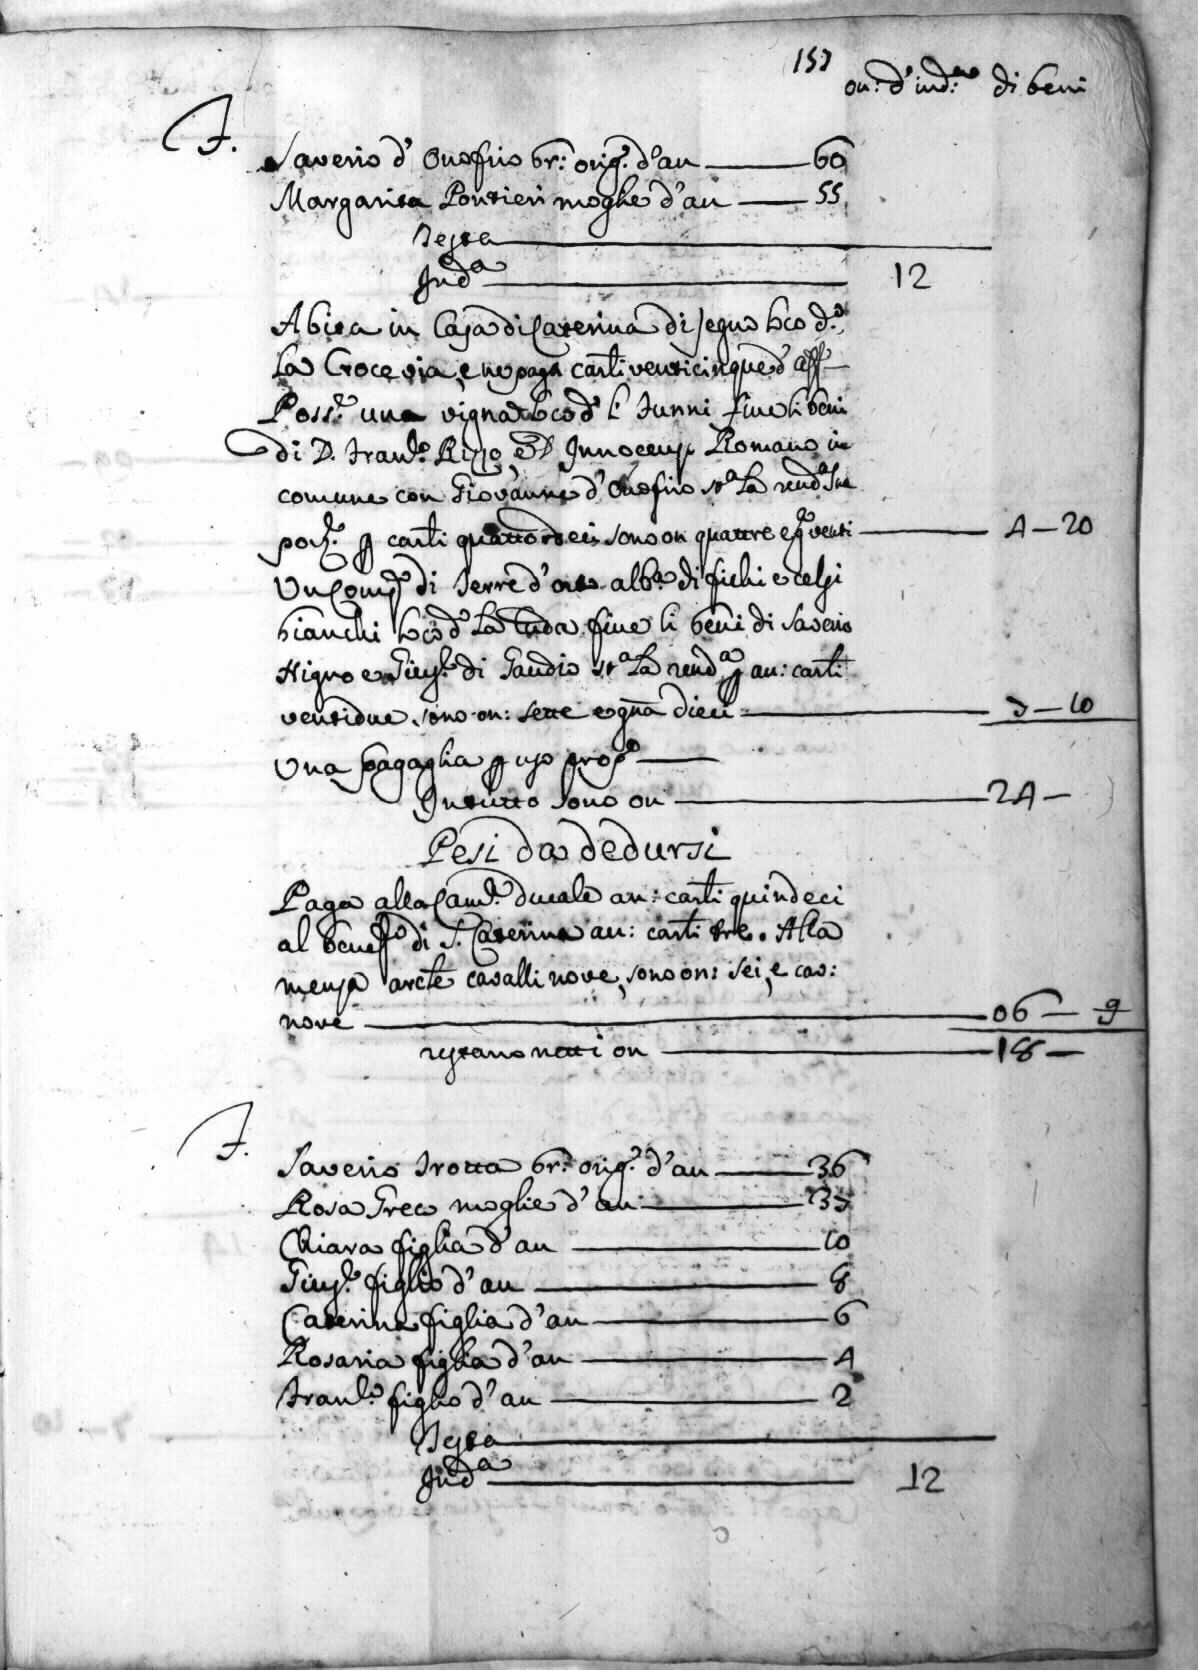 157
on: d'ind:ria di beni
F.
Saverio d'Onofrio br: orig:o d'an 60
Margarita Pontieri moglie d'an 55
Testa
Ind:a 12
Abita in Casa di Caterina di Segna loco d:o
La Croce via, e ne paga carli venticinque d'aff:
Poss:e una vigna loco d:o li Tunni fine li beni
di D. Fran:co Rizzo, ed Innocenzo Romano in
comune con Giovanne d'Onofrio st:a la rend:a sua
porz:e p carli quattordeci sono on quattro e g:a venti 4 — 20
Un Comp:o di Terre d'ort: alb:e di fichi e celsi
bianchi loco d:o La Tuda fine li beni di Saverio
Nigro e Gius:e di Gaudio st:a la rend:a p an: carli
ventidue sono on: sette e grna dieci 7 — 10
Una pagaglia p uso prop:o
In tutto sono on 24 —
Pesi da dedursi
Paga alla Cam:a ducale an: carli quindeci
al benef:o di S. Caterina an: carli tre. Alla
mensa arcle cavalli nove, sono on: sei, e cav:
nove 06 — 9
restano netti on 18 —
F.
Saverio Trotta br: orig:o d'an 36
Rosa Greco moglie d'an 37
Chiara figlia d'an 10
Gius:e figlio d'an 8
Caterina figlia d'an 6
Rosaria figlia d'an 4
Fran:co figlio d'an 2
Testa
Ind:a 12